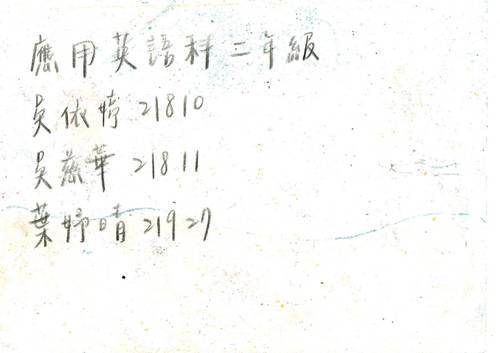 應用英語科二年級
吳依婷 21810
吳慈華 21811
葉妤晴 21927